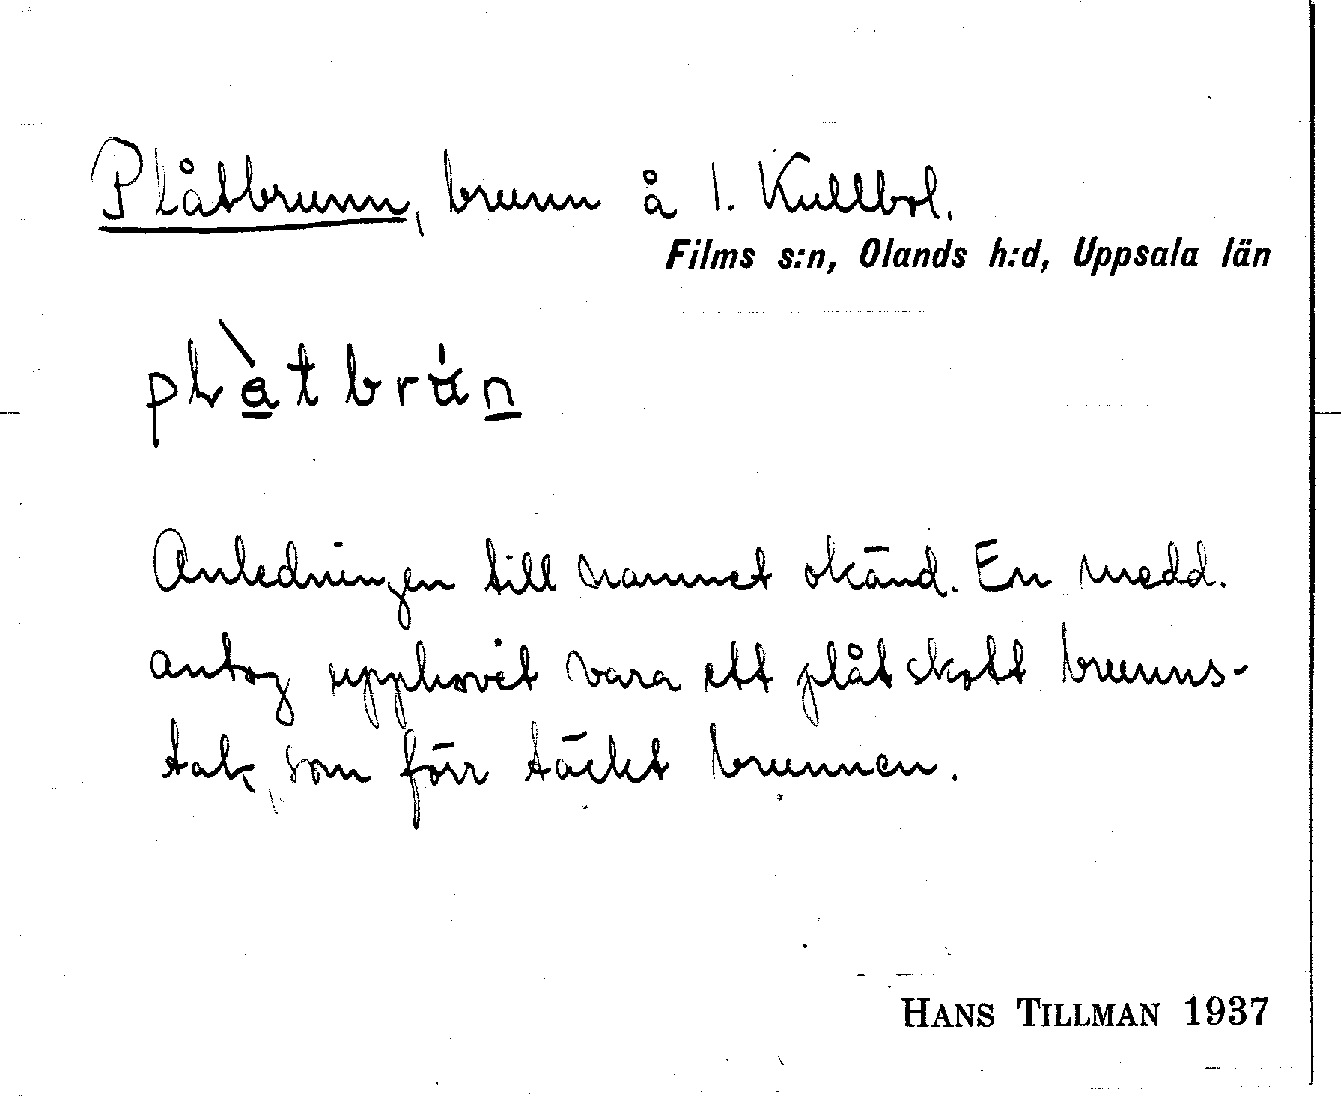 Plåtbrunn, brunn å 1. Kullbol.
Films s:n, Olands h:d, Uppsala län
plàtbrun
Anledningen till namnet okänd. En medd.
antog upphovet vara ett plåtskott brunns-
tak, som förr täckt brunnen.
HANS TILLMAN 1937